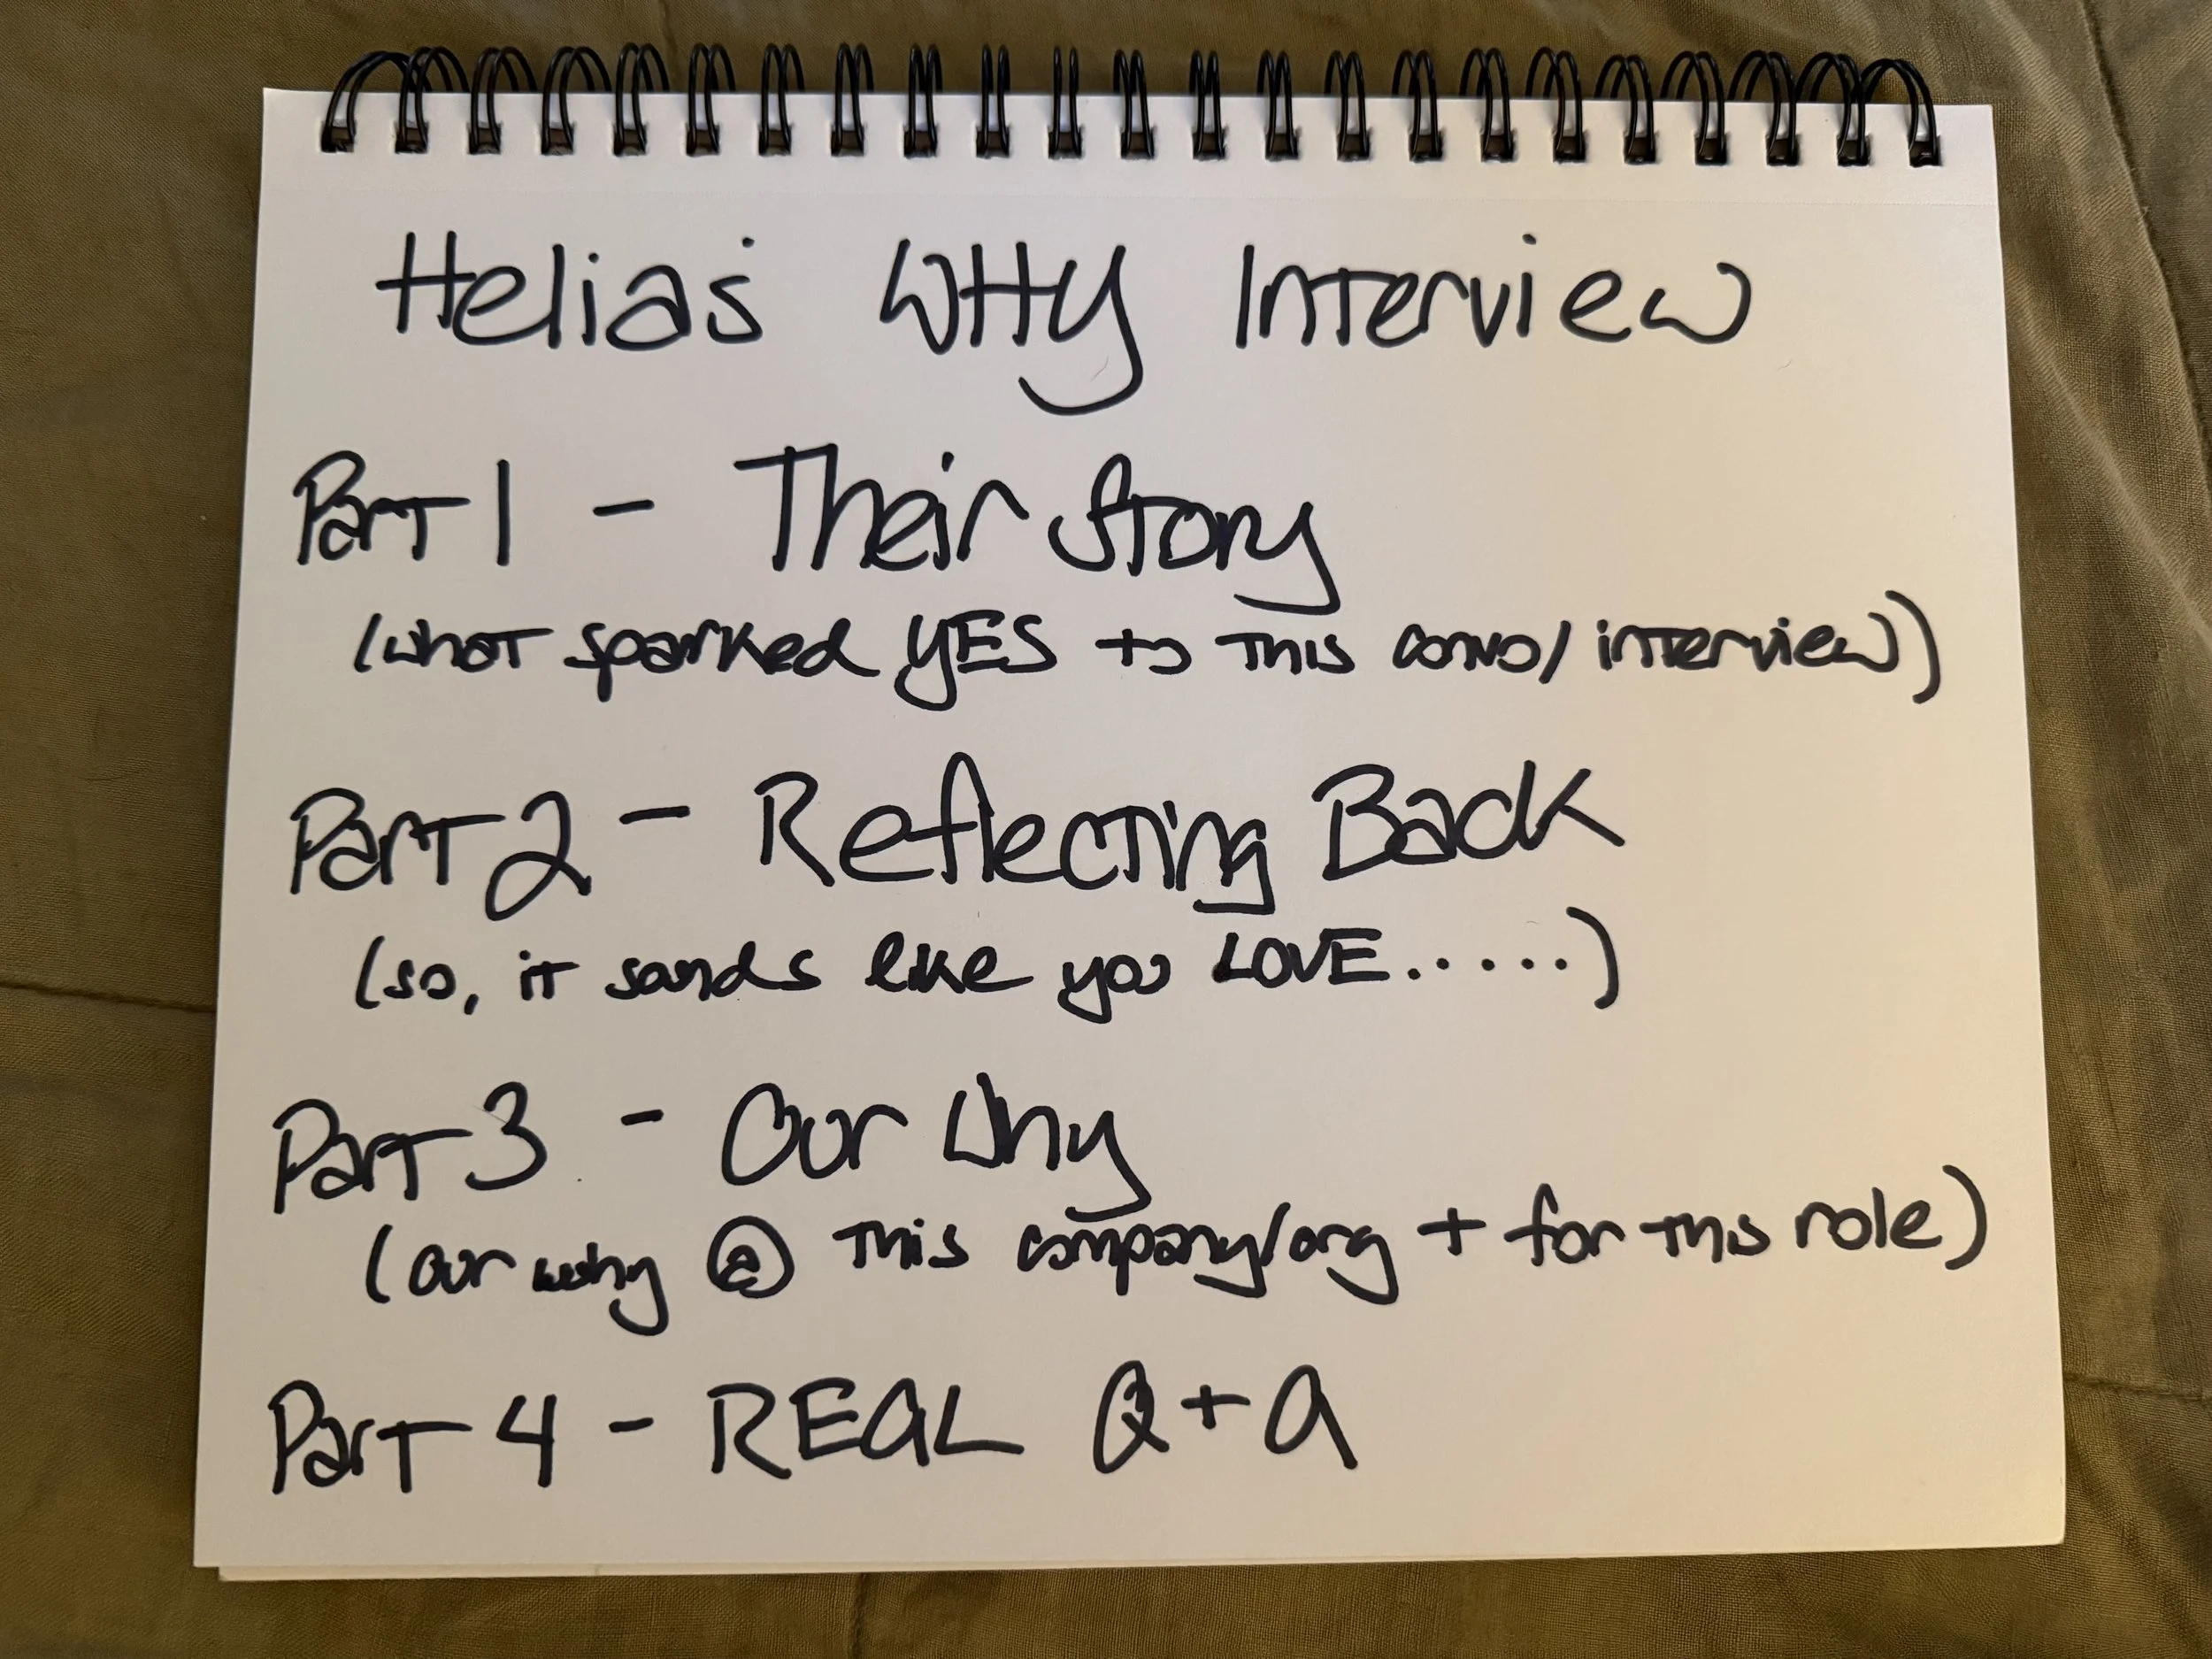 Helias WHY Interview
Part 1 - Their Story
(what sparked YES to this convo/interview)
Part 2 - Reflecting Back
(so, it sounds like you LOVE.....)
Part 3 - Our Why
(our why @ this company/org + for this role)
Part 4 - REAL Q+A